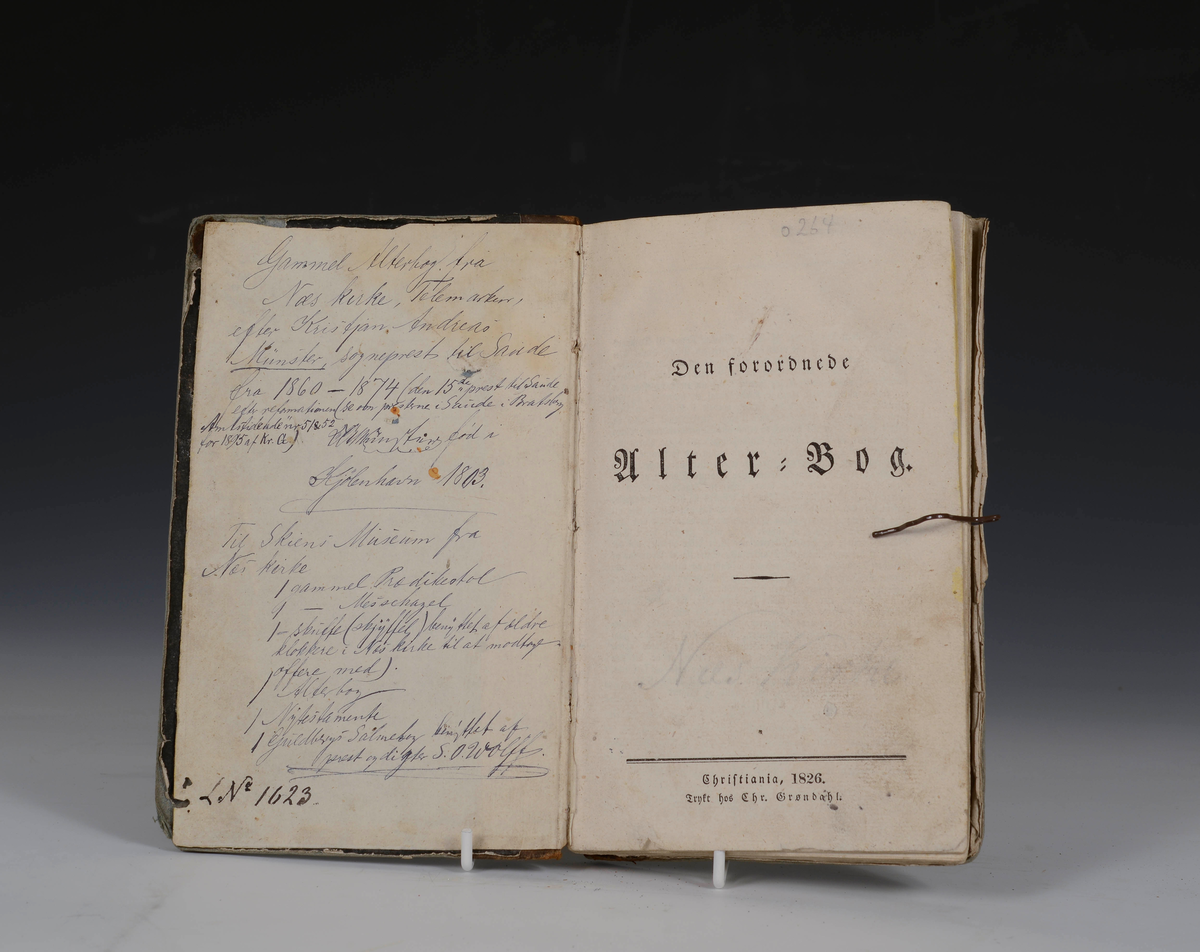 Gammel Alterbog fra
Næs kirke, Telemarken,
efter Kristjan Andreas
Münster, sogneprest til Saude
fra 1860 – 1874 (den 15de prest til Saude
efter reformationen (se om presterne i Saude i Bratsberg
Amtstidende nr 51 & 52
for 1875 af Kr. G.) Münster født i
Kjöbenhavn 1803.
Til Skiens Museum fra
Næs kirke
1 gammel Prædikestol
1 — Messehagel
1 – skuffe (skyffel) benyttet af ældre
klokkere i Næs kirke til at modtage
offere med).
1 Alterbog
1 Nytestamente
1 Guldbergs Salmebog benyttet af
prest og digter S. O. Wolff.
L Nº 1623.
0264
Den forordnede
Alter=Bog.
Christiania, 1826.
Trykt hos Chr. Grøndahl.